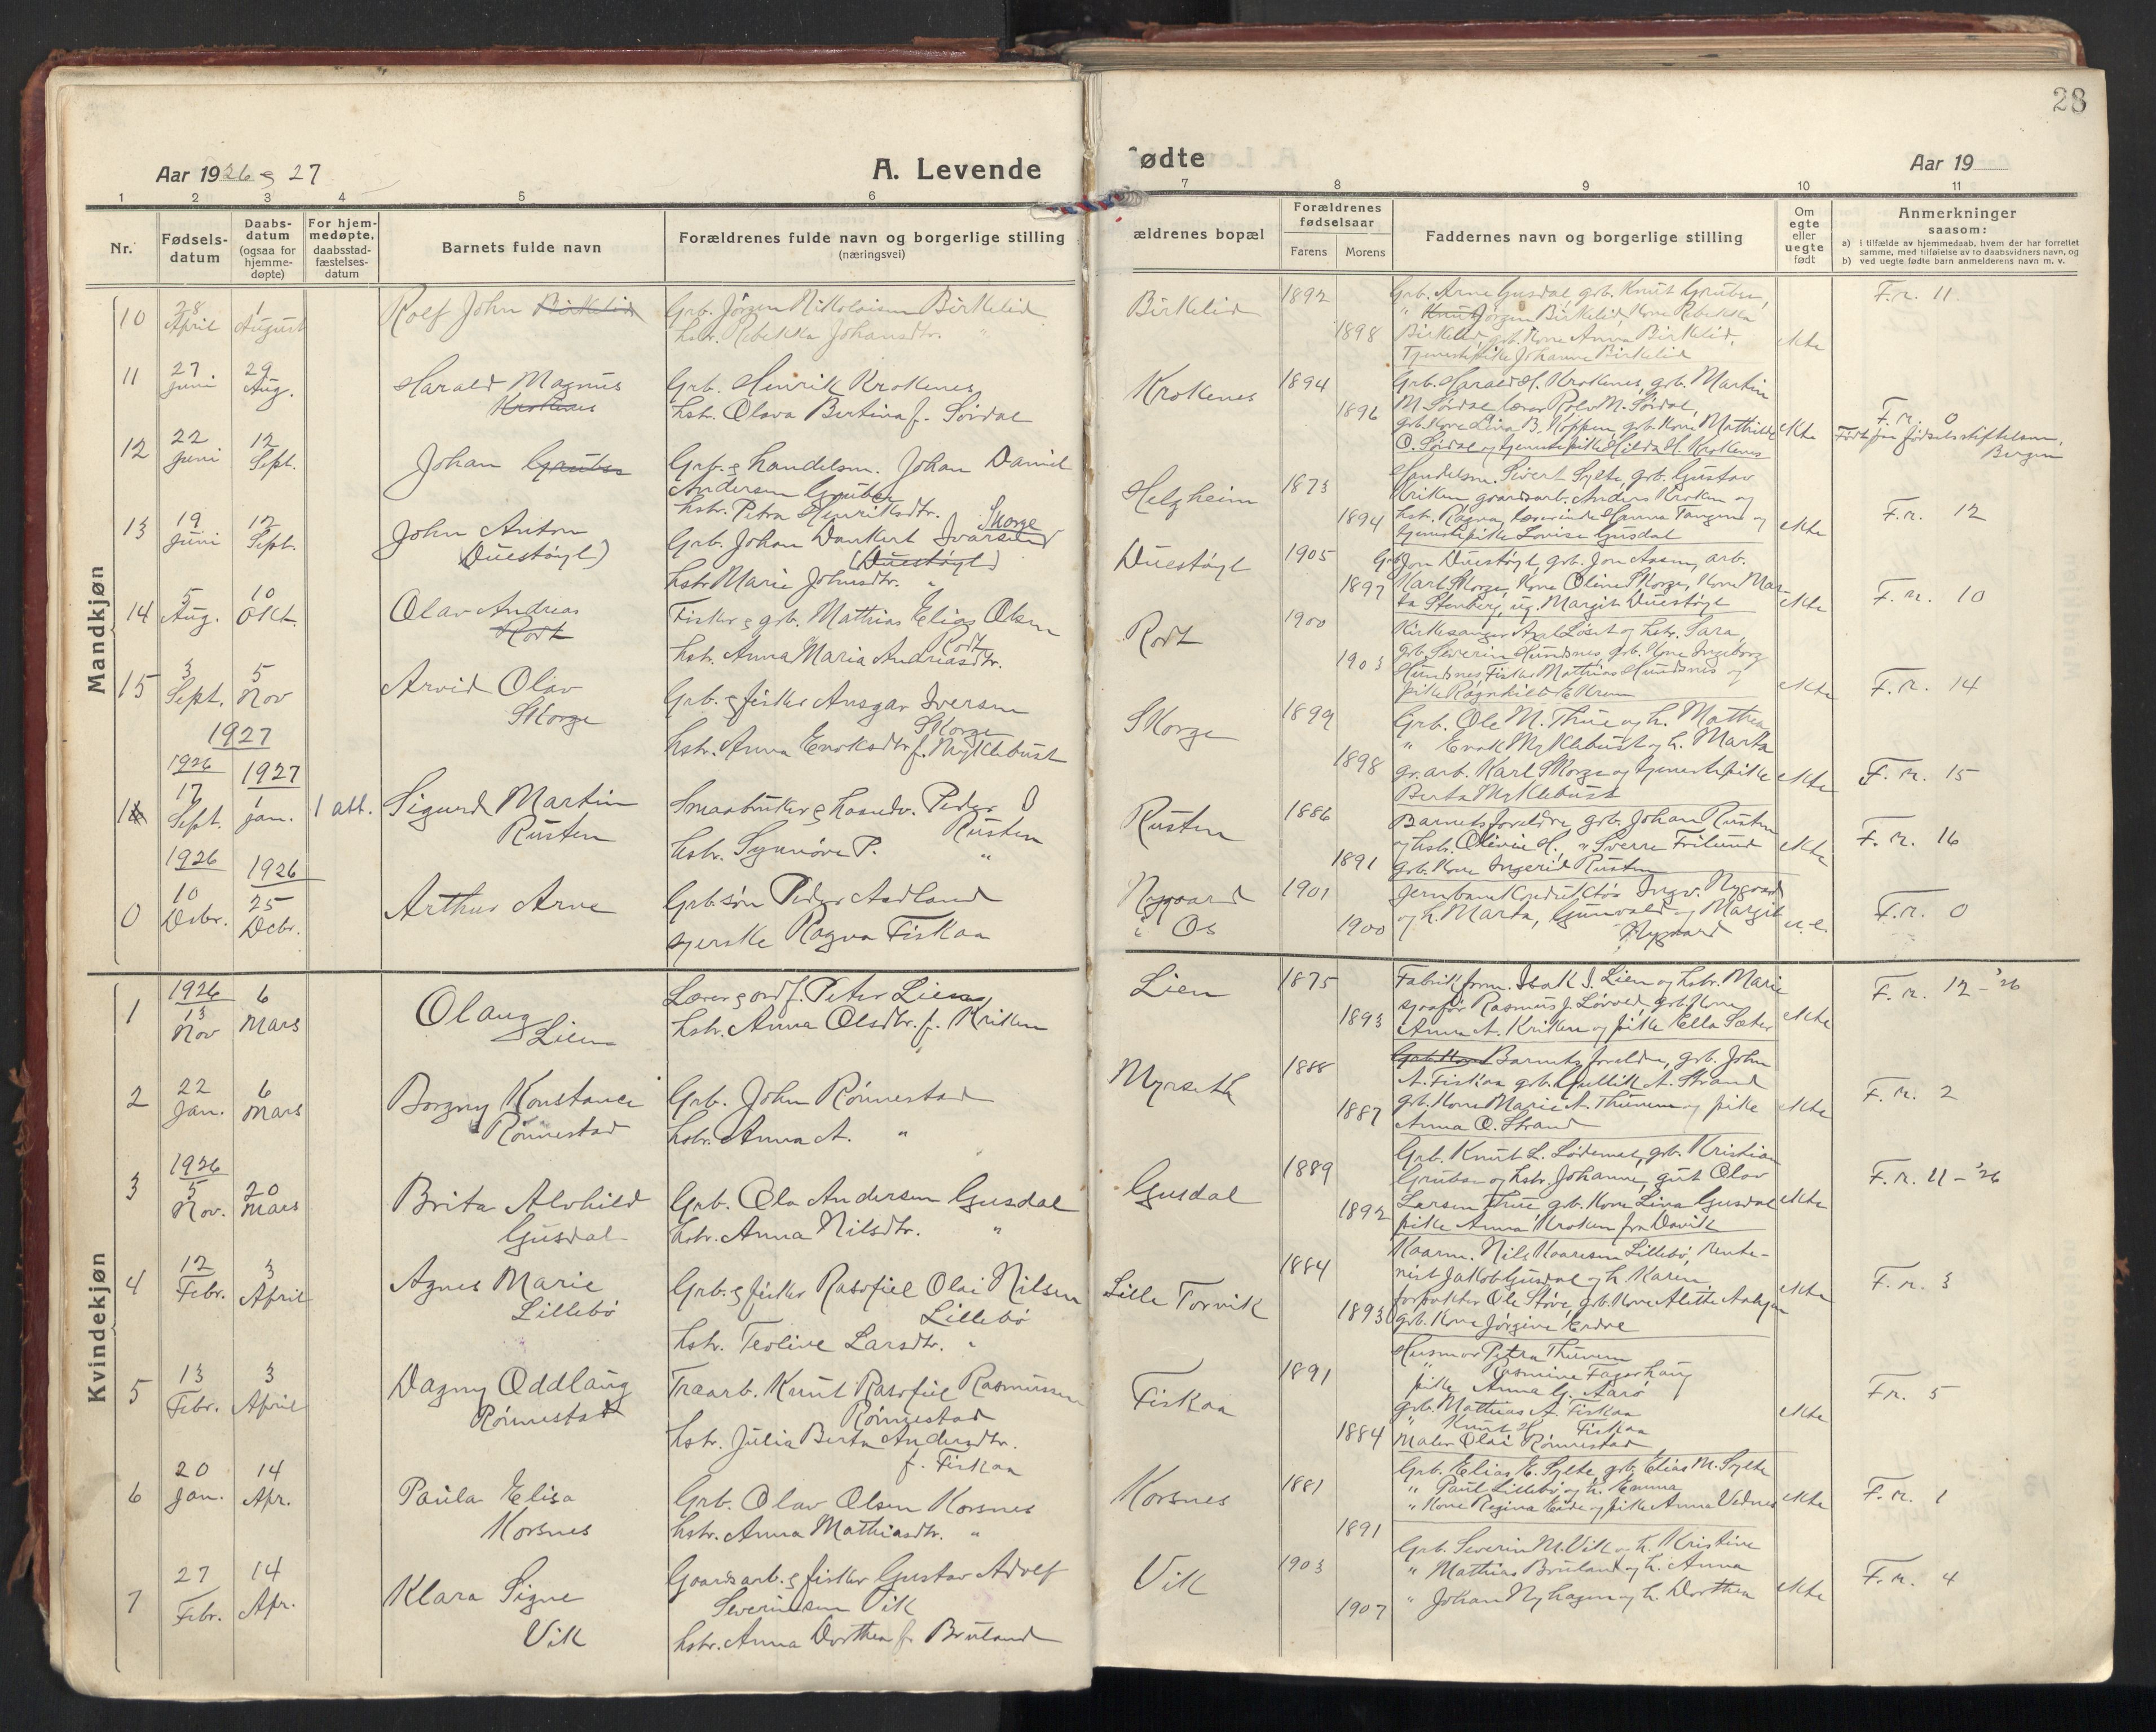 28
Aar 1926 & 27
A. Levende
fødte
Aar 19
1 2 3 4 5 6 7 8 9 10 11
Nr.
Fødsels-
datum
Daabs-
datum
(ogsaa for
hjemme-
døpte)
For hjem-
medøpte,
daabsstad-
fæstelses-
datum
Barnets fulde navn
Forældrenes fulde navn og borgerlige stilling
(næringsvei)
ældrenes bopæl
Forældrenes
fødselsaar
Farens Morens
Faddernes navn og borgerlige stilling
Om
egte
eller
uegte
født
Anmerkninger
saasom:
a) i tilfælde av hjemmedaab, hvem der har forrettet
samme, med tilføielse av to daabsvidners navn, og
b) ved uegte fødte barn anmelderens navn m. v.
Mandkjøn
10 28 April 1 August
Rolf John Birkelid
Grb. Jörgen Nikolaisen Birkelid
hstr. Rebekka Johansdtr. "
Birkelid
1892
1898
Grb. Arne Gusdal grb. Knut Gruben,
" Knut Jörgen Birkelid, Kone Rebekka
Birkelid, grb. Kone Anna Birkelid,
Tjenestepike Johanne Birkelid
ekte
F.n. 11
11 27 Juni 29 Aug.
Harald Magnus
Krokenes
Grb. Henrik Krokenes,
hstr. Olava Bertina f. Sördal
Krokenes
1894
1896
Grb. Harald H. Krokenes, grb. Martin
M. Sördal lærer Rolv M. Sördal,
grb. Kone Lina B. Koppen, grb. Kone Mathilde
O. Sördal og tjenestepike Hilda H. Krokenes
ekte
F.n. 0
Født paa fødselsstiftelsen,
Bergen
12 22 Juni 12 Sept.
Johan Gruben
Grb. & handelsm. Johan Daniel
Andersen Gruben
hstr. Petra Henriksdtr.
Helgheim
1873
1894
Handelsm. Sivert Sylte, grb. Gustav
Kriken gaardsarb. Anders Kroken og
hstr. Ragna, lærerinde Hanna Tangene og
tjenestepike Lovise Gusdal
ekte
F.n. 12
13 19 Juni 12 Sept.
John Anton
(Duestöyl)
Grb. Johan Dankert Ivarsen Skorge
(Duestöyl)
hstr. Marie Johnsdtr. "
Duestöyl
1905
1897
Grb. Jon Duestöyl, grb. Jon Aasen, arb.
Karl Skorge, Kone Oline Skorge, Kone Mar-
ta Stenberg, ug. Margit Duestöyl
ekte
F.n. 10
14 5 Aug. 10 Okt.
Olav Andreas
Rodt
Fisker & grb. Mathias Elias Olsen
Rodt
hstr. Anna Maria Andreasdtr.
Rodt
1900
1903
Kirkesanger Axel Löset og hstr. Sara,
grb. Severin Hundsnes, grb. Kone Ingeborg
Hundsnes Fisker Mathias Hundsnes og
pike Ragnhild E. Krum
ekte
F.n. 14
15 3 Sept. 5 Nov
Arvid Olav
Skorge
Grb. & fisker Ansgar Iversen
Skorge
hstr. Anna Enoksdtr. f. Myklebust
Skorge
1899
1898
Grb. Ole M. Thue og h. Mathea
" Enok Myklebust og h. Marta
gr. arb. Karl Skorge og tjenestepike
Berta Myklebust
ekte
F.n. 15
1927
1926 1927
1 17 Sept. 1 jan. 1 att.
Sigurd Martin
Rusten
Smaabruker & handv. Peder O
Rusten
hstr. Synnöve P. "
Rusten
1886
1891
Barnets foreldre, grb. Johan Rusten
og hstr. Olivie H., " Sverre Frilund
grb. Kone Ingerid Rusten
ekte
F.n. 16
1926 1926
0 10 Debr. 25 Debr.
Arthur Arne
Grb.søn Peder Aadland
syerske Ragna Fiskaa
Nygaard
i Os
1901
1900
Jernbanekonduktör Ingv. Nygaard
og h. Marta, Gunvald og Margit
Nygaard
u.e.
F.n. 0
Kvindekjøn
1 1926 13 Nov 6 Mars
Olaug
Lien
Lærer & ordf. Peter Lien,
hstr. Anna Olsdtr. f. Kriken
Lien
1875
1893
Fabrikform. Isak I. Lien og hstr. Marie
sjaafør Rasmus J. Lörved, grb. Kone
Anna A. Kriken og pike Ella Sæter
ekte
F.n. 12 - '26
2 22 Jan. 6 Mars
Borgny Konstance
Rönnestad
Grb. John Rönnestad
hstr. Anna A. "
Myrseth
1888
1887
Grb. Kone Barnets foreldre, grb. John
A. Fiskaa grb. Gullik A. Strand
grb. Kone Marie A. Thunem og pike
Anna O. Strand
ekte
F.n. 2
3 1926 5 Nov. 20 Mars
Brita Alvhild
Gusdal
Grb. Ola Andersen Gusdal
hstr. Anna Nilsdtr. "
Gusdal
1889
1892
Grb. Knut L. Lödemel, grb. Kristian
Gruben og hstr. Johanne, gut Olav
Larsen Thue, grb. Kone Lina Gusdal
pike Anna Kroken fra Davik
ekte
F.n. 11 - '26
4 12 Febr. 3 April
Agnes Marie
Lillebö
Grb. & fisker Rasofiel Olai Nilsen
Lillebö
hstr. Teoline Larsdtr. "
Lille Torvik
1884
1893
Kaarm. Nils Kaaresen Lillebö, rente-
nist Jakob Gusdal og h. Karen,
forpakter Ole Støve, grb. Kone Alette
grb. Kone Jörgine Erdve
ekte
F.n. 3
5 13 Febr. 3 April
Dagny Oddlaug
Rönnestad
Traarb. Knut Rasofiel Rasmussen
Rönnestad
hstr. Julia Berta Andersdtr.
f. Fiskaa
Fiskaa
1891
1884
Husmor Petra Thunem
" Rasmine Fagerhaug
pike Anna G. Aarö
grb. Mathias A. Fiskaa
" Knut H. Fiskaa
Maler Olai Rönnestad
ekte
Fn. 5
6 20 Jan. 14 Apr.
Paula Elisa
Korsnes
Grb. Olav Olsen Korsnes
hstr. Anna Mathiasdtr. "
Korsnes
1881
1891
Grb. Elias E. Sylte, grb. Elias M. Sylte
" Paul Lillebö og h. Emma
" Kone Regina Eide og pike Anna Vednes
ekte
F.n. 1
7 27 Febr. 14 Apr.
Klara Signe
Vik
Gaardsarb. & fisker Gustav Adolf
Severinsen Vik
hstr. Anna Dorthea f. Bruland
Vik
1903
1907
Grb. Severin M. Vik og h. Kristine
" Mathias Bruland og h. Anna
" Johan Nyhagen og h. Dorthea
ekte
F.n. 4